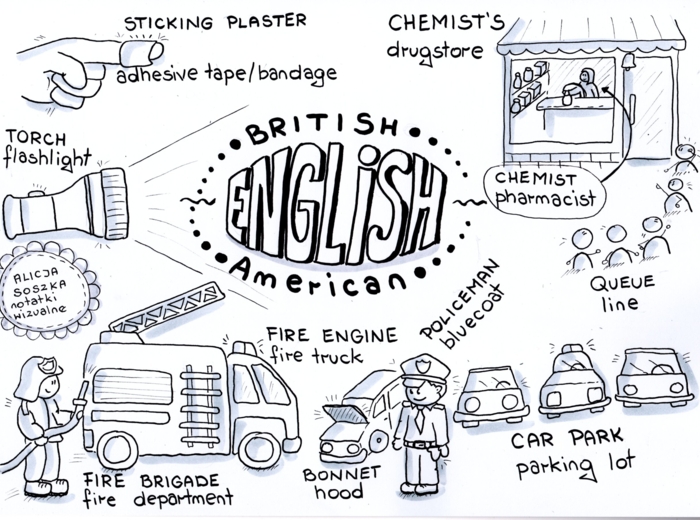 STICKING PLASTER
adhesive tape/bandage
CHEMIST'S
drugstore
TORCH
flashlight
BRITISH
ENGLISH
American
CHEMIST
pharmacist
QUEUE
line
ALICJA
SOSZKA
notatki
wizualne
FIRE ENGINE
fire truck
POLICEMAN
bluecoat
FIRE BRIGADE
fire department
BONNET
hood
CAR PARK
parking lot